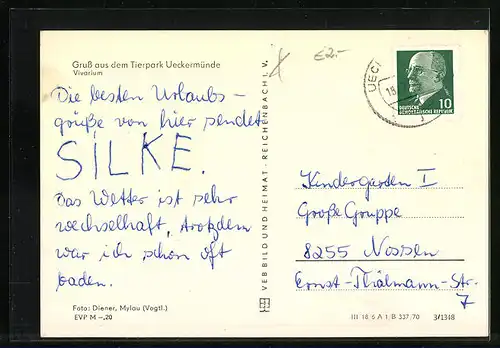 Gruß aus dem Tierpark Ueckermünde
Vivarium
Die besten Urlaubs-
grüße von hier sendet
SILKE.
Das Wetter ist sehr
wechselhaft, trotzdem
war ich schon oft
baden.
Foto: Diener, Mylau (Vogtl.)
EVP M -,20
VEB BILD UND HEIMAT · REICHENBACH I. V.
€2.-
UECK
18
DEUTSCHE
DEMOKRATISCHE REPUBLIK
10
Kindergarten I
Große Gruppe
8255 Nossen
Ernst-Thälmann-Str.
7
III 18 6 A 1 B 337/70
3/1318